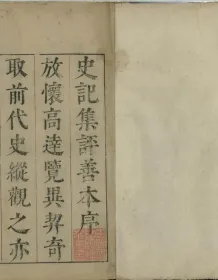 史記集評善本序
放懷高達覽異契奇
取前代史縱觀之亦